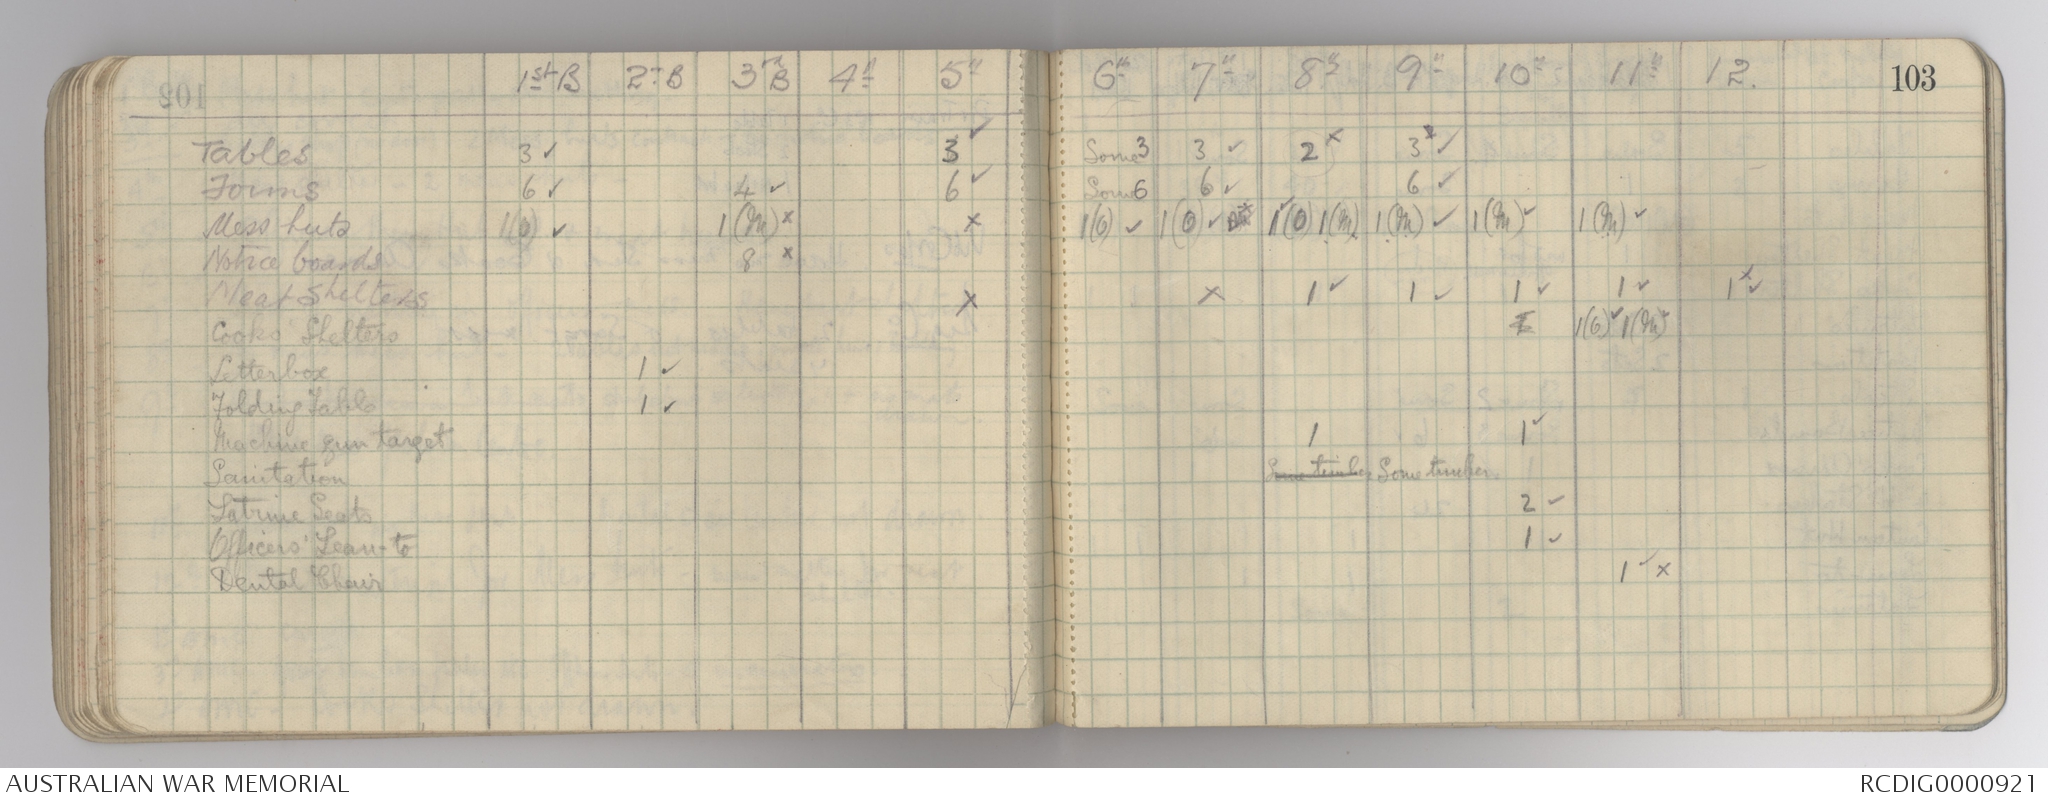 1st B 2nd B 3rd B 4th 5th 6th 7th 8th 9th 10th 11th 12. 103
Tables 3 ✓ 3 ✓ Some 3 3 ✓ 2 x 3 x ✓
Forms 6 ✓ 4 ✓ 6 ✓ Some 6 6 ✓ 6 ✓
Mess huts 1(O) ✓ 1(M) x x 1(O) ✓ 1(O) ✓ 1(O) ✓ 1(M) 1(M) ✓ 1(M) ✓ 1(M) ✓
Notice boards 8 x
Meat Shelters x x 1 ✓ 1 ✓ 1 ✓ 1 ✓ 1 ✓
Cooks' Shelters 1(O) ✓ 1(M) ✓
Letterbox 1 ✓
Folding Table 1 ✓
Machine gun target 1 1 ✓
Sanitation Some timber. Some timber.
Latrine Seats 2 ✓
Officers' Lean-to 1 ✓
Dental Chair 1 ✓ x
AUSTRALIAN WAR MEMORIAL RCDIG0000921